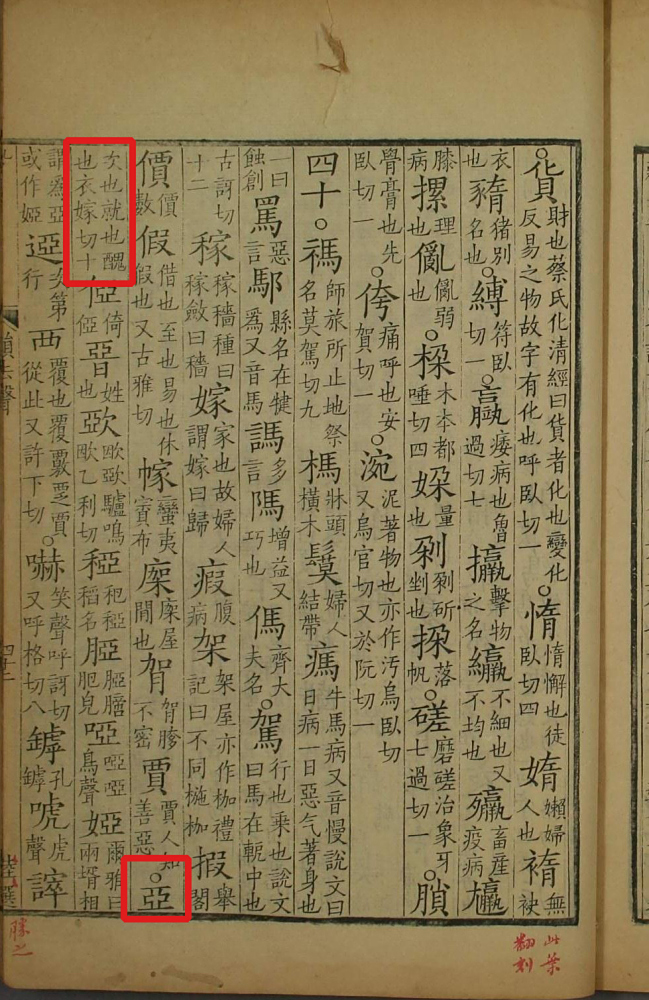 ○貨財也蔡氏化清經曰貨者化也變化反易之物故字有化也呼臥切一○惰惰懈也徒臥切四媠嬾婦人也䙐無袂
衣㺄豬別名也○縛符臥切一○臝痿病也魯過切七攭擊物之名纙不細也又不均也㿔畜產疫病欙
膝病摞理也㒩㒩弱也○桗木本都唾切四㛆量也剁剁斫剉也挅落帆○磋磨磋治象牙七過切一○䐝
臋膏也先臥切一○侉痛呼也安賀切一○涴泥著物也亦作汚烏臥切又烏官切又於阮切一
四十○禡師旅所止地祭名莫駕切九榪牀頭橫木鬕婦人結帶瘑牛馬病又音慢說文曰目病一曰惡气著身也
一曰蝕創罵惡言鄢縣名在犍爲又音馬䣕多言隖增益又巧也傿齊大夫名○駕行也乘也說文曰馬在軛中也
古訝切十二稼稼穡種曰稼斂曰穡嫁家也故婦人謂嫁曰歸瘕腹病架架屋亦作枷禮記曰不同椸枷叚舉閣
價價數假借也至也易也休假也又古雅切幏蠻夷賨布㢉㢉屋閒也䝱䝱䏾不密賈賈人知善惡○亞
次也就也醜也衣嫁切十俹倚俹㬱姓也㰳㰳㰳驢鳴㰳乙利切稏䆉稏稻名䐅䐅䐒肥皃啞啞啞鳥聲婭爾雅曰兩壻相
謂爲亞或作婭迓次第行襾覆也覆覈覂賈從此又許下切○嚇笑聲呼訝切又呼格切八罅孔罅唬虎聲謑
韻去聲
四十二
此葉
翻刻